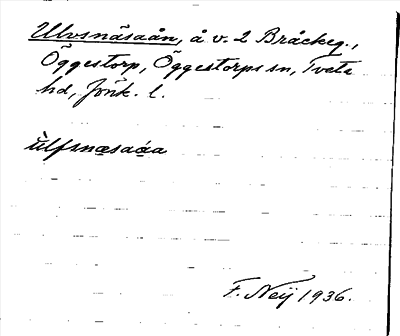 Ulvsnäsaån, å v. 2 Bråckeg.,
Öggestorp, Öggestorps sn, Tveta
hd, Jönk. l.
ùlfsnæsaåa
F. Neij 1936.